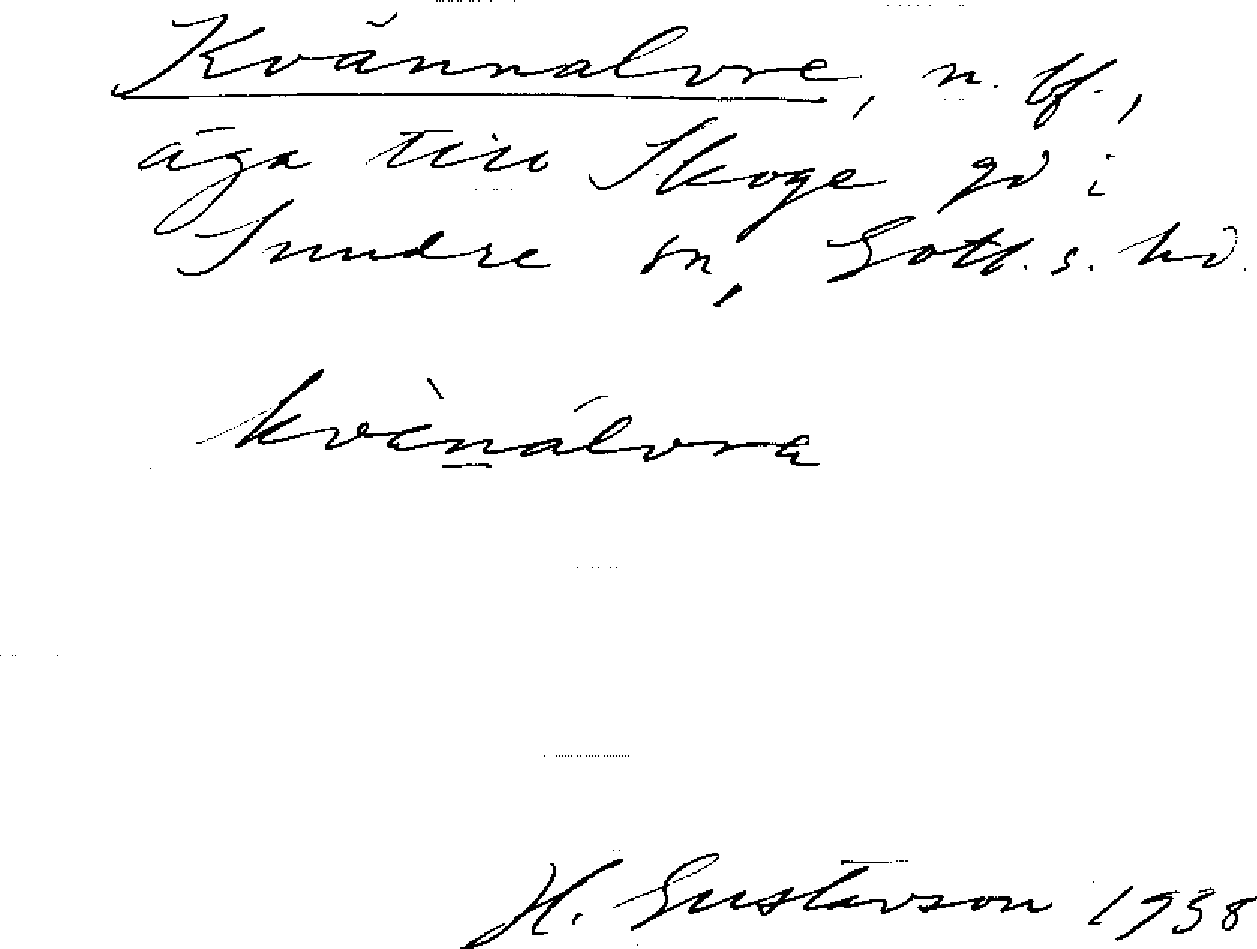 Kvännalvre, n. bf.,
äga till Skoge gd i
Sundre sn, Gotl. s. hd.
kvènálvrɐ
H. Gustavson 1938